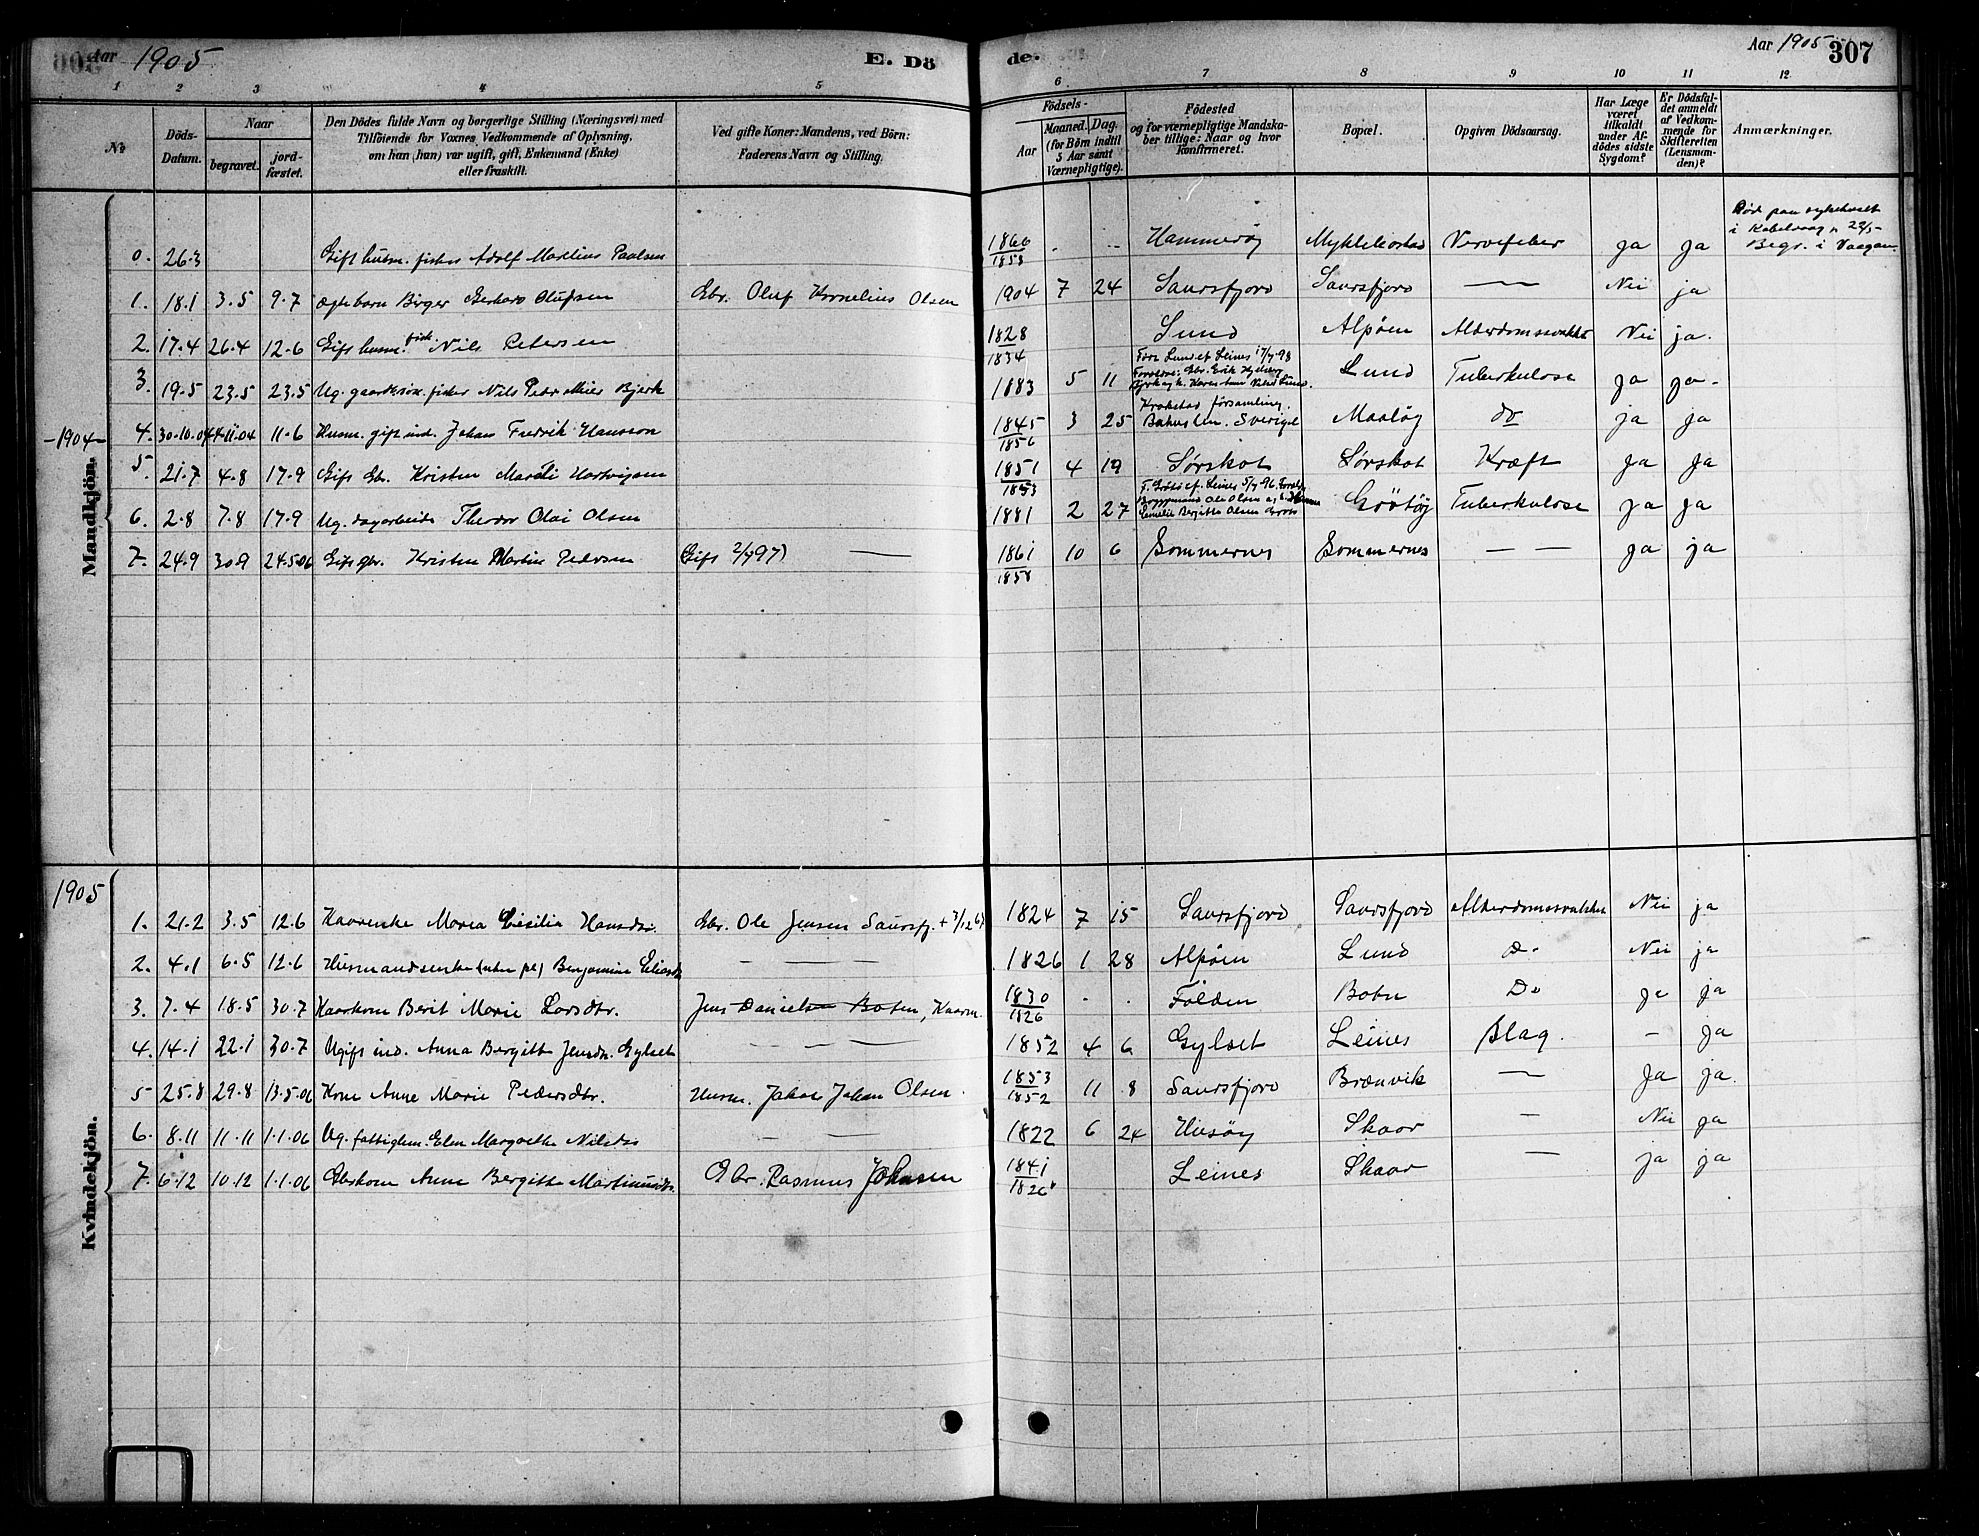 Aar 1905
E. Dö
de.
Aar 1905 307
1 2 3 4 5 6 7 8 9 10 11 12
No
Döds-
Datum.
Naar
begravet.
jord-
fæstet.
Den Dödes fulde Navn og borgerlige Stilling (Næringsvei) med
Tilföiende for Voxnes Vedkommende af Oplysning,
om han (hun) var ugift, gift, Enkemand (Enke)
eller fraskilt.
Ved gifte Koner: Mandens, ved Börn:
Faderens Navn og Stilling.
Födsels-
Aar
Maaned. Dag.
(for Börn indtil
5 Aar samt
Værnepligtige).
Födested
og for værnepligtige Mandska-
ber tillige: Naar og hvor
konfirmeret.
Bopæl.
Opgiven Dödsaarsag.
Har Læge
været
tilkaldt
under Af-
dödes sidste
Sygdom?
Er Dödsfal-
det anmeldt
af Vedkom-
mende for
Skifteretten
(Lensman-
den)?
Anmærkninger.
Mandkjön.
0. 26.3 Gift husm. fisker Adolf Marelius Paulsen 1866 1858 Hammerøy Myklebostad Nervefeber ja ja Død paa sykehuset
i Kabelvaag
Begr. i Vaagan
1. 18.1 3.5 9.7 Ægtebarn Birger Gerhard Olufsen Gbr. Oluf Kornelius Olsen 1904 7 24 Saursfjord Saursfjord — Nei ja
2. 17.4 26.4 12.6 Gift husm. fisk. Nils Petersen 1828 1834 Lund Alpøen Alderdomssvakhet Nei ja.
3. 19.5 23.5 23.5 Ug. gaardbr.søn. fisker Nils Peder Bjerk 1883 5 11 Leines 17/7 98
Lund Tuberkulose ja ja
-1904- 4. 30.10.04 4.11.04 11.6 Husm. gift ind. Johan Fredrik Hansson 1845 1856 3 25 Krokstad forsamling,
Bahus len. Sverige Maaløy do ja ja
5. 21.7 4.8 17.9 Gift Gbr. Kristen Hartvigsen 1851 1853 4 19 Sørskot Sørskot Kræft ja ja
6. 2.8 7.8 17.9 Ug. dagarbeider Theodor Olai Olsen 1881 2 27 Leines 5/7 96
Ole Olsen
Bergitte Olsen Grøtøy Tuberkulose ja ja
7. 24.9 30.9 24.5.06 Gift gbr. Kristen Martin Pedersen Gift 2/7 97) — 1861 1858 10 6 Sommernes Sommernes — — ja ja
1905
Kvindekjön.
1. 21.2 3.5 12.6 Kaarenke Maria Cecilia Hansdtr. Gbr. Ole Jensen Saursfj. 1824 7 15 Saursfjord Saursfjord Alderdomssvakhet Nei ja
2. 4.1 6.5 12.6 Husmandsenke Benjamine Eliasdtr — — — 1826 1 28 Alpøen Lund Do Nei ja
3. 7.4 18.5 30.7 Kaarkone Berit Marie Larsdtr. Jens Danielsen Boten, Kaarm. 1830 1826 Folden Botn Do ja ja
4. 14.1 22.1 30.7 Ugift ind. Anna Bergitte Jensdtr. Gylset — — — 1852 4 6 Gylset Leines Slag. — ja
5 25.8 29.8 13.5.06 Kone Anne Marie Pedersdtr. Husm. Johan Johan Olsen 1853 1852 11 8 Saursfjord Brænvik — ja ja
6. 8.11 11.11 1.1.06 Ug. fattiglem. Elen Margrethe Nilsdtr — — 1822 6 24 Husøy Skaar — Nei ja
7. 6.12 10.12 1.1.06 Gbrkone Anne Bergitte Martinusdtr. Gbr. Rasmus Johnsen 1841 1826 Leines Skaar — ja ja